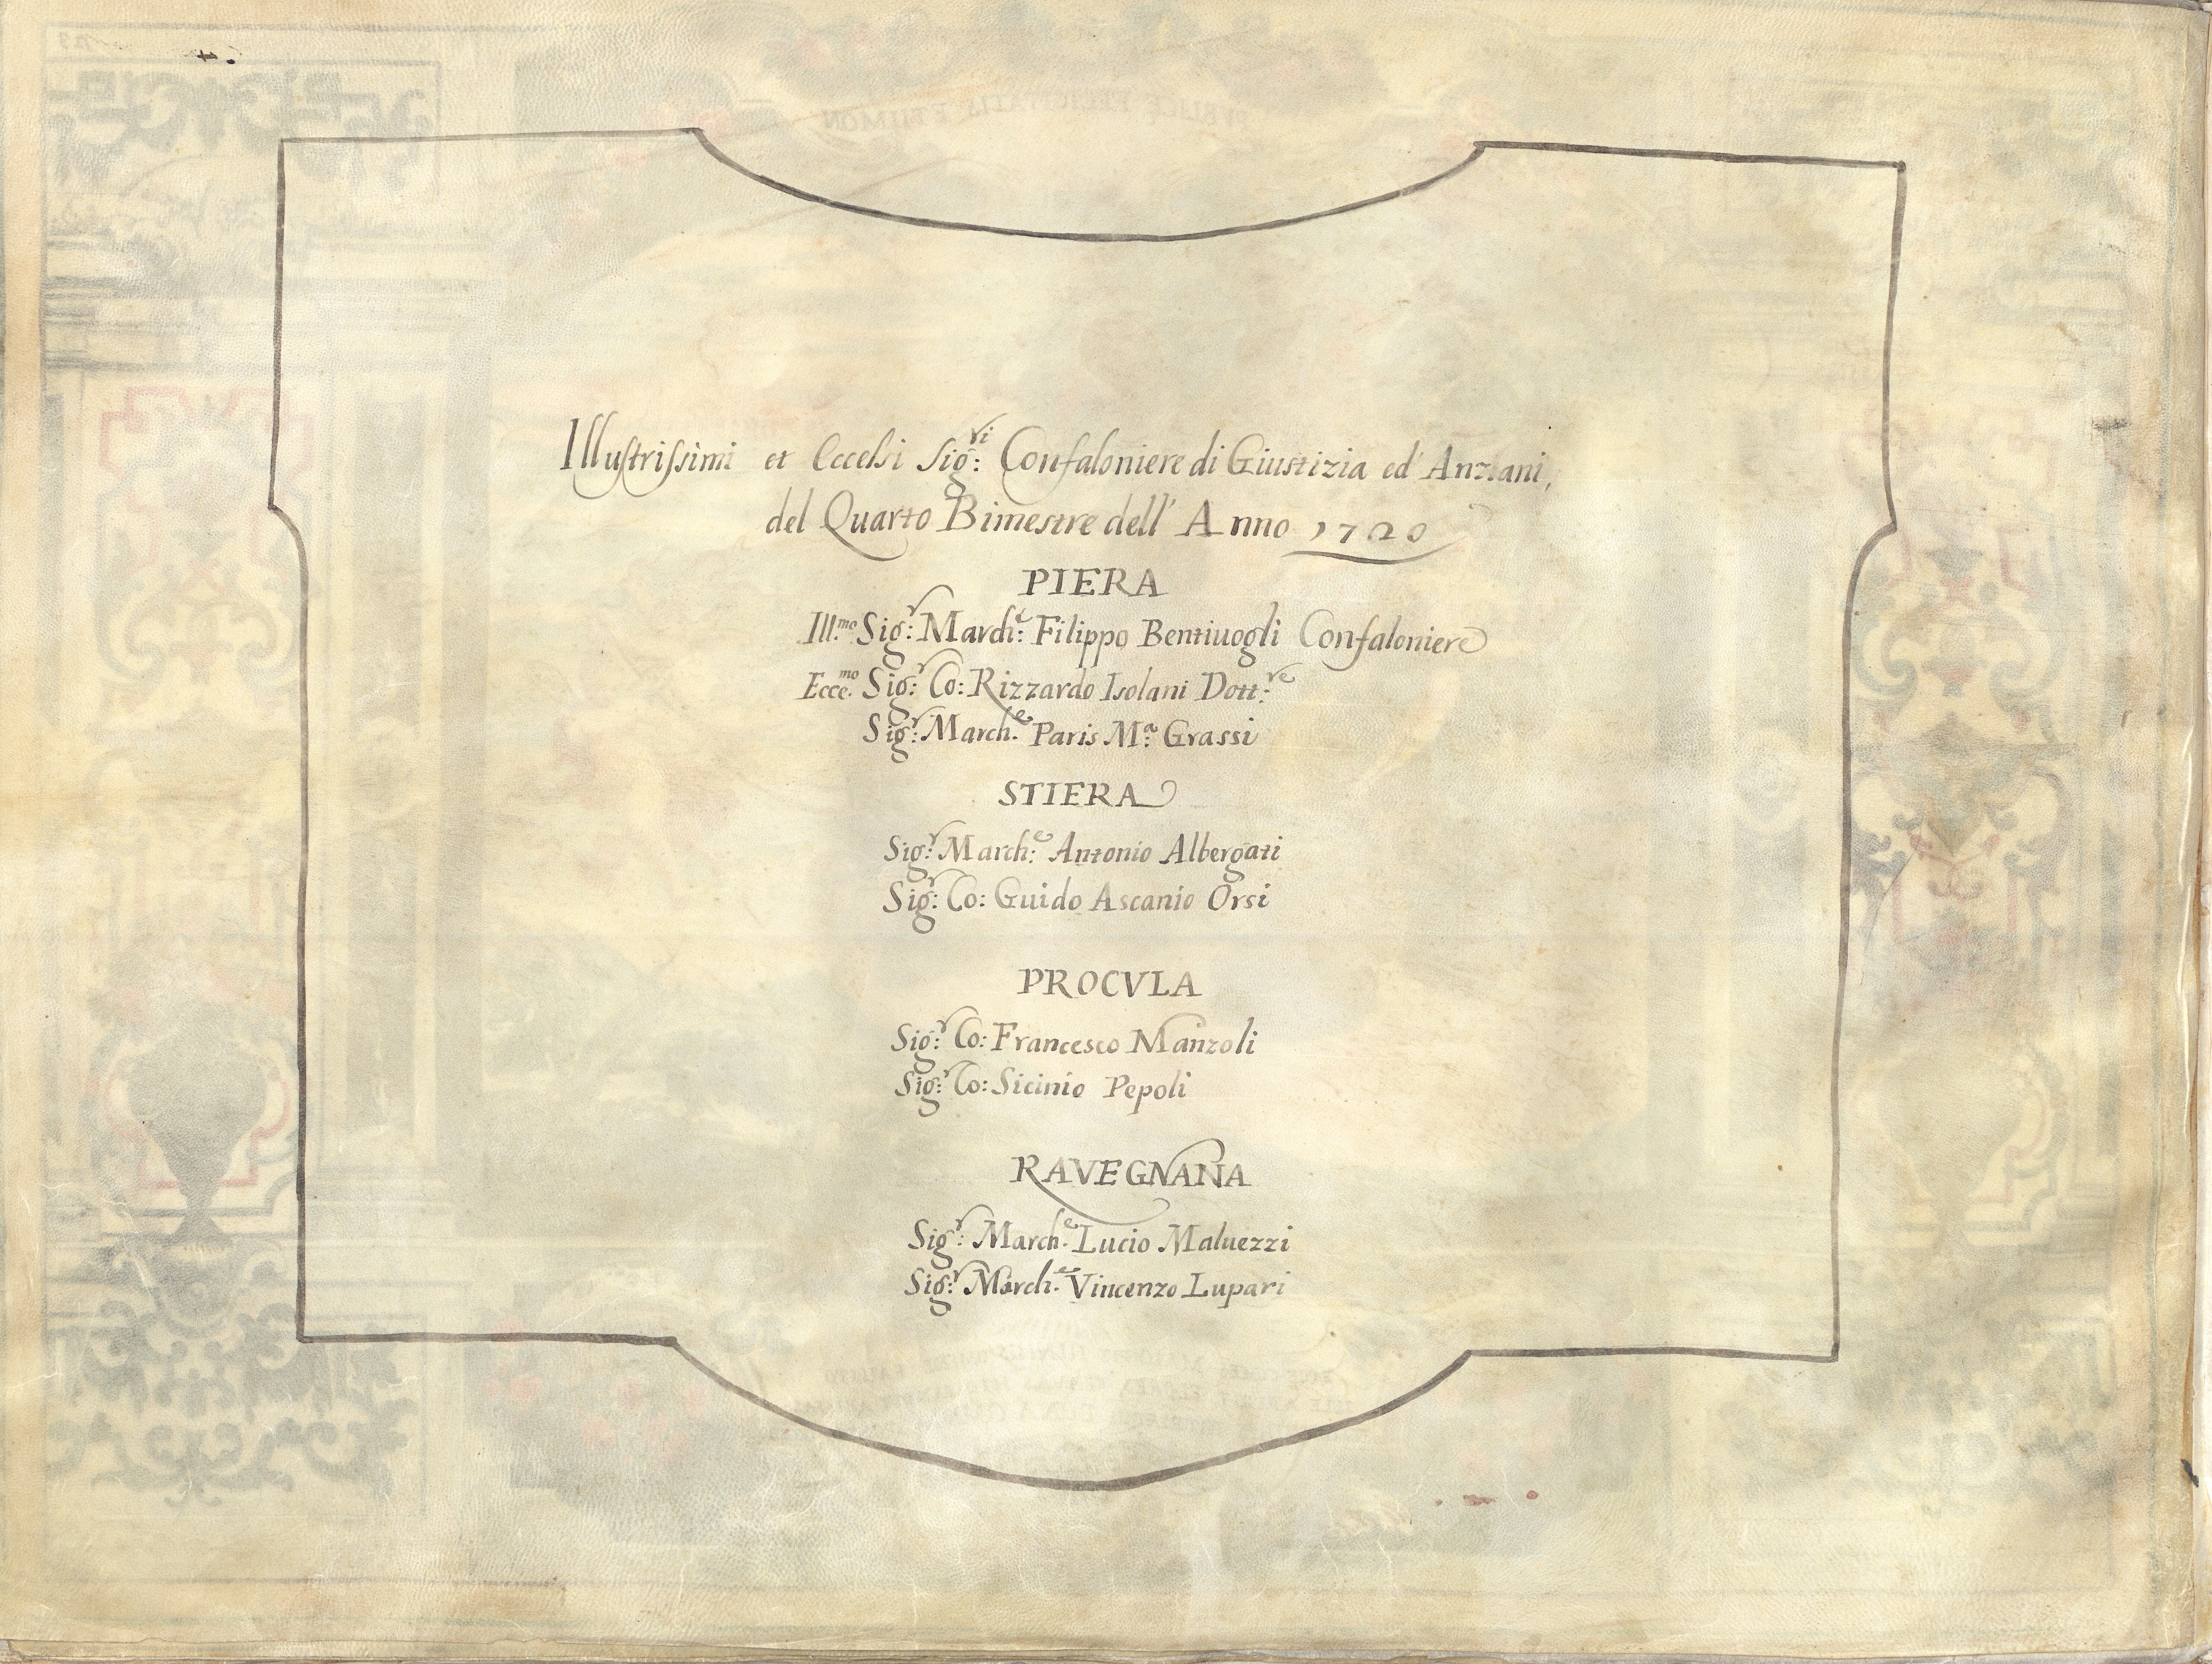 Illustrissimi et Eccelsi Sig:ri Confaloniere di Giustizia ed' Anziani,
del Quarto Bimestre dell' Anno 1720
PIERA
Ill.mo Sig:r March:e Filippo Bentiuogli Confaloniere
Ecce.mo Sig:r Co: Rizzardo Isolani Dott:re
Sig:r March.e Paris M:a Grassi
STIERA
Sig:r March:e Antonio Albergati
Sig:r Co: Guido Ascanio Orsi
PROCVLA
Sig:r Co: Francesco Manzoli
Sig:r Co: Sicinio Pepoli
RAVEGNANA
Sig:r March.e Lucio Maluezzi
Sig:r March.e Vincenzo Lupari